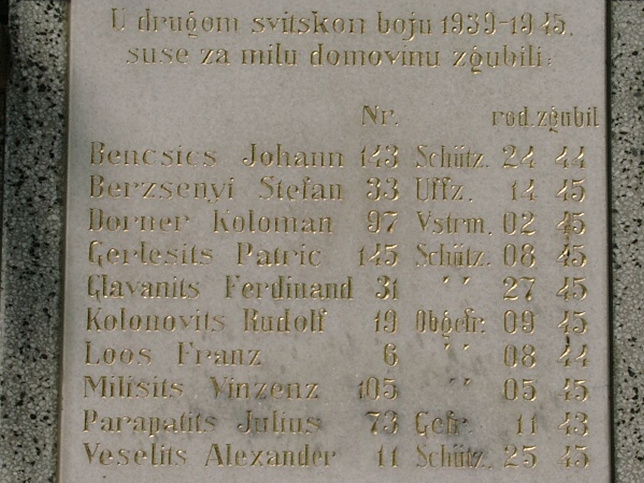 U drugom svitskon boju 1939-1945.
suse za milu domovinu zgubili:
Nr. rod. zgubil
Bencsics Johann 143 Schütz. 24 44
Berzsenyi Stefan 33 Uffz. 14 45
Dorner Koloman 97 Vstrm. 02 45
Gerlesits Patric 145 Schütz. 08 45
Glavanits Ferdinand 31 " 27 45
Kolonovits Rudolf 19 Obgefr. 09 45
Loos Franz 6 " 08 44
Milisits Vinzenz 105 " 05 45
Parapatits Julius 73 Gefr. 11 43
Veselits Alexander 11 Schütz. 25 45